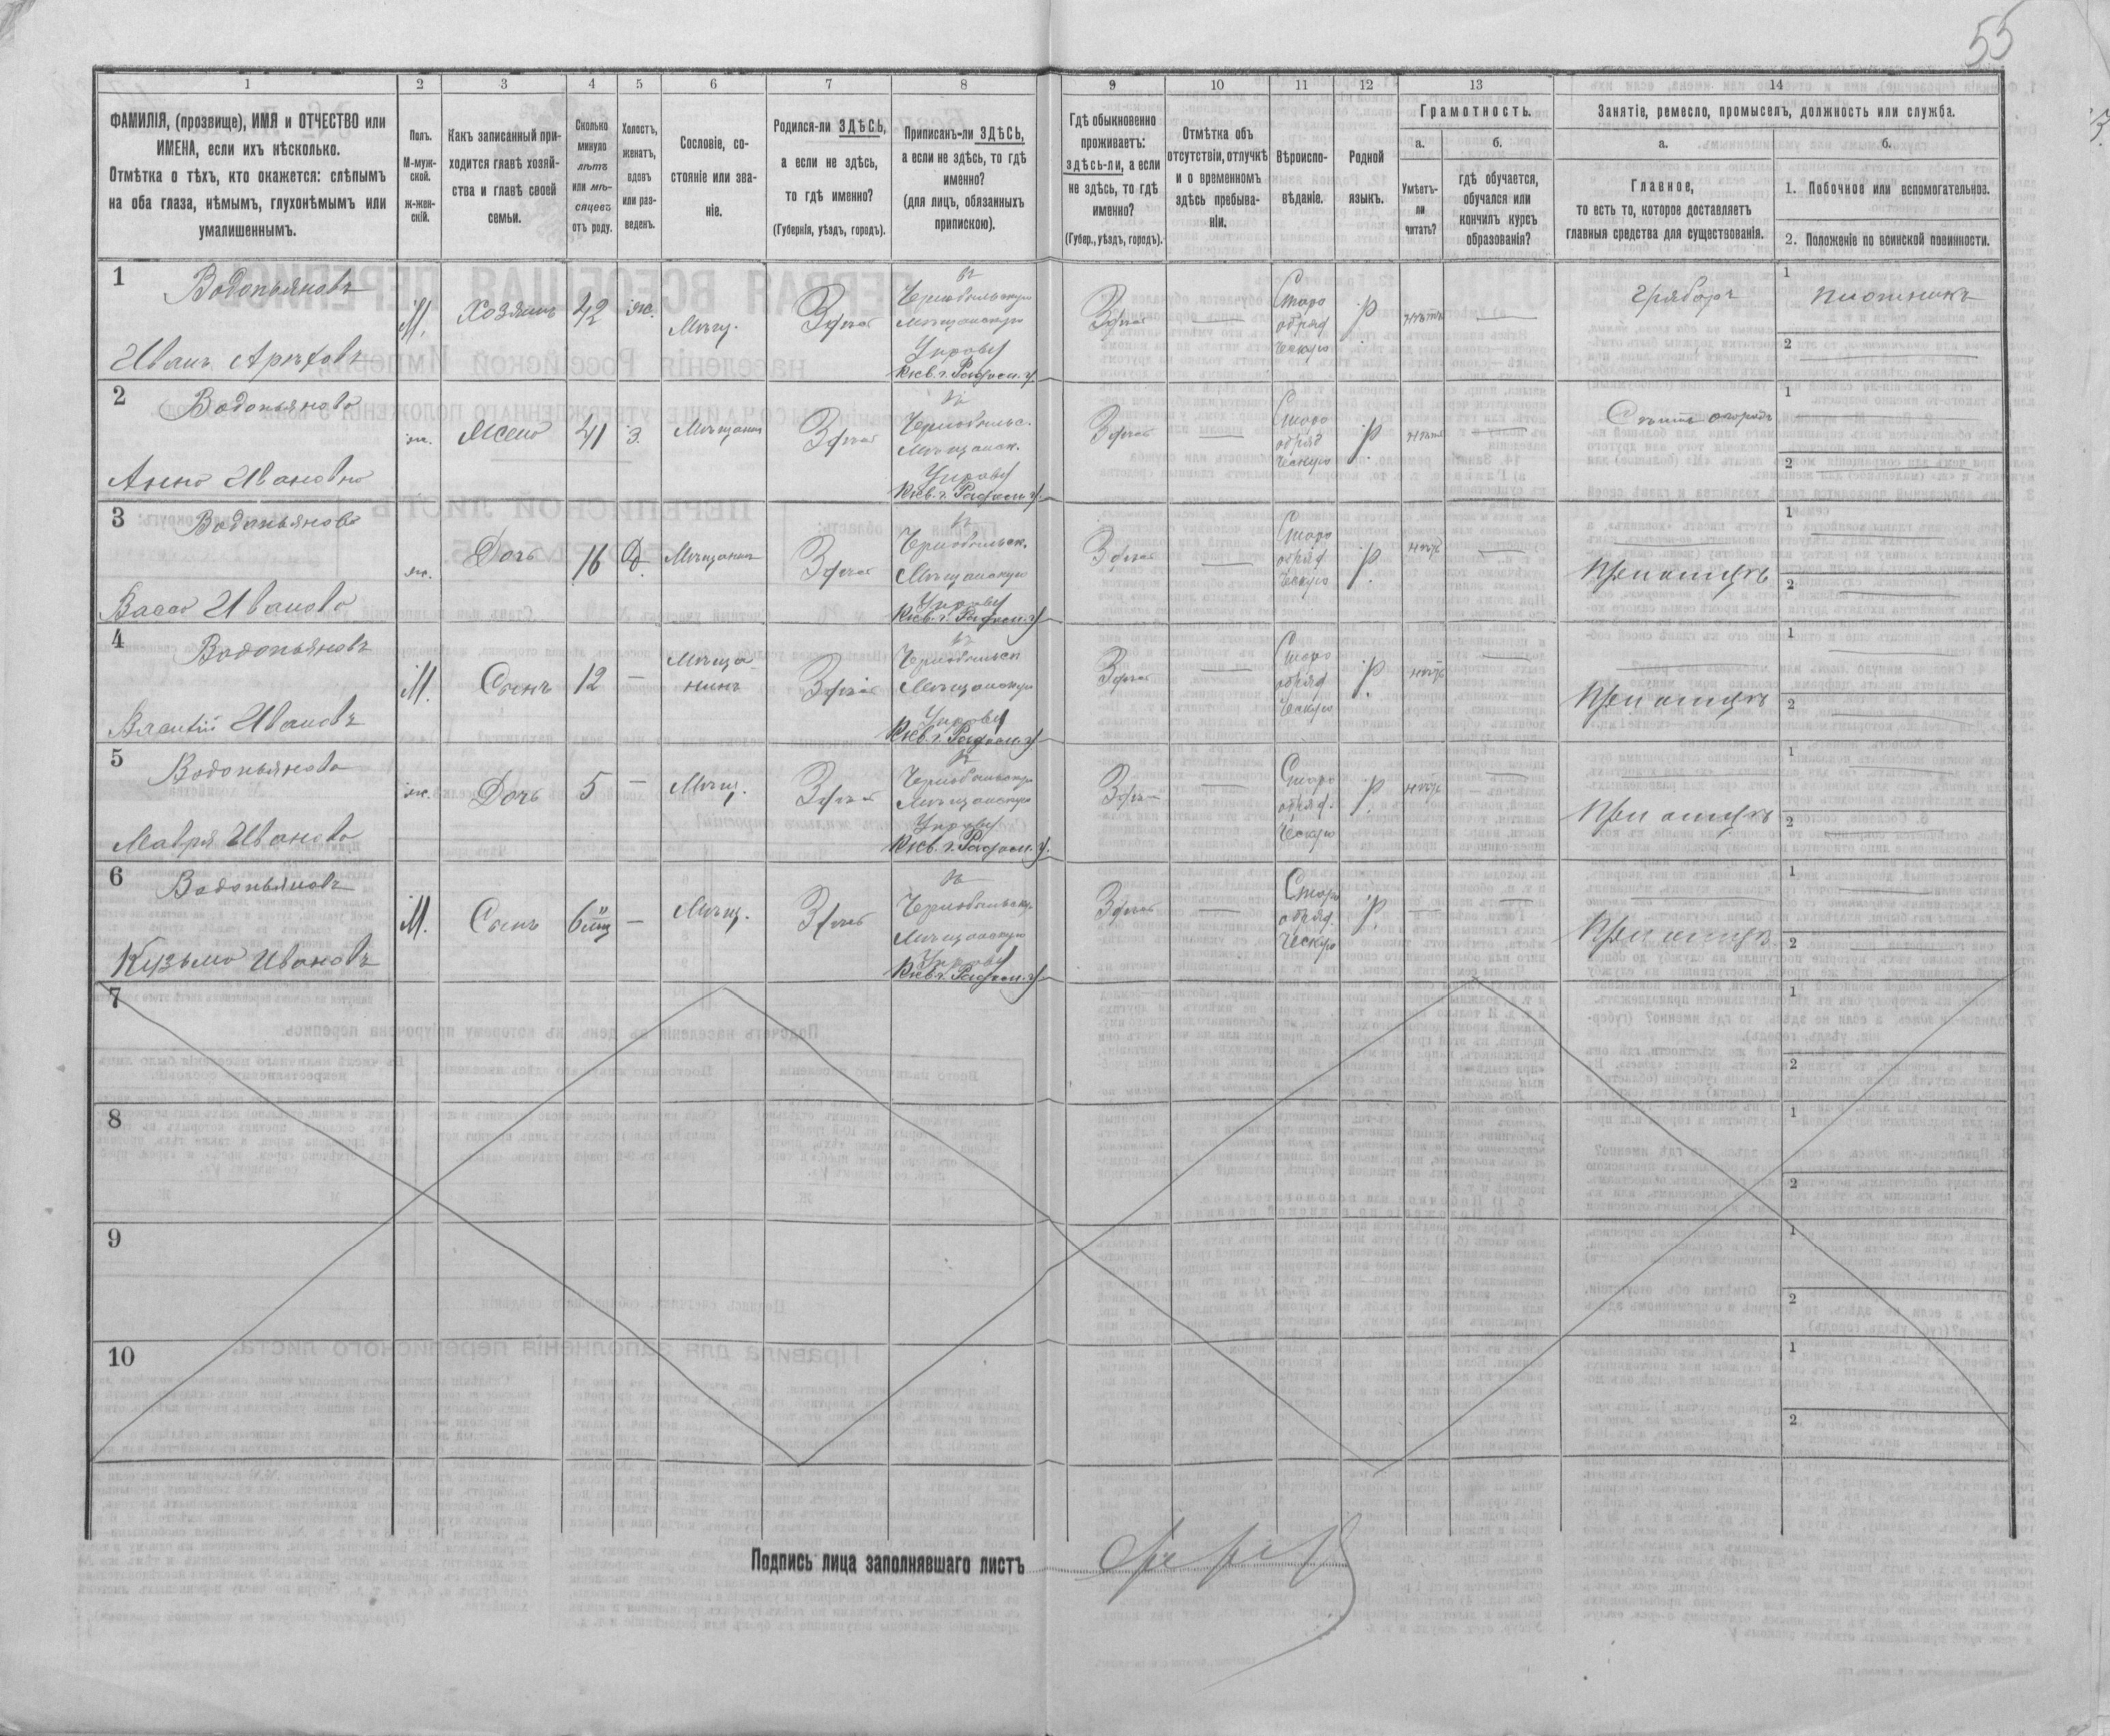 55
1 2 3 4 5 6 7 8 9 10 11 12 13 14
ФАМИЛІЯ, (прозвище), ИМЯ и ОТЧЕСТВО или ИМЕНА, если ихъ нѣсколько.
Отмѣтка о тѣхъ, кто окажется: слѣпымъ на оба глаза, нѣмымъ, глухонѣмымъ или умалишеннымъ.
Полъ.
М-муж-
ской.
ж-жен-
скій.
Какъ записанный при-
ходится главѣ хозяй-
ства и главѣ своей
семьи.
Сколько
минуло
лѣтъ
или мѣ-
сяцевъ
отъ роду.
Холостъ,
женатъ,
вдовъ
или раз-
веденъ.
Сословіе, со-
стояніе или зва-
ніе.
Родился-ли ЗДѢСЬ,
а если не здѣсь,
то гдѣ именно?
(Губернія, уѣздъ, городъ).
Приписанъ-ли ЗДѢСЬ,
а если не здѣсь, то гдѣ
именно?
(для лицъ, обязанныхъ
припискою).
Гдѣ обыкновенно
проживаетъ:
здѣсь-ли, а если
не здѣсь, то гдѣ
именно?
(Губер., уѣздъ, городъ).
Отмѣтка объ
отсутствіи, отлучкѣ
и о временномъ
здѣсь пребыва-
ніи.
Вѣроиспо-
вѣданіе.
Родной
языкъ.
Грамотность.
а.
Умѣетъ-
ли
читать?
б.
гдѣ обучается,
обучался или
кончилъ курсъ
образованія?
Занятіе, ремесло, промыселъ, должность или служба.
а.
Главное,
то есть то, которое доставляетъ
главныя средства для существованія.
б.
1. Побочное или вспомогательное.
2. Положеніе по воинской повинности.
1
Водопьяновъ
Иванъ
М. Хозяинъ 42 ж. Мѣщ. Здѣсь
въ
Чернобыльскую
мѣщанскую
Управу
Кіев. г. Радом. у.
Здѣсь — Старо
обряд
ческую
р нѣтъ —
1 плотникъ
2 —
2
Водопьянова
Анна Ивановна
ж. Жена 41 з. Мѣщанка Здѣсь
въ
Чернобыльс.
мѣщанск.
Управу
Кіев. г. Радом. у.
Здѣсь — Старо
обряд
ческую
р. нѣтъ —
1 —
2 —
3
Водопьянова
Васса Иванова
ж. Дочь 16 Д. Мѣщанка Здѣсь
въ
Чернобыльск.
Мѣщанскую
Управу
Кіев. г. Радом. у.
Здѣсь — Старо
обряд
ческую
р. нѣтъ —
При отцѣ
1 —
2 —
4
Водопьяновъ
Ивановъ
М. Сынъ 12 — Мѣща-
нинъ
Здѣсь
въ
Чернобыльск
Мѣщанскую
Управу
Кіев. г. Радом. у.
Здѣсь — Старо
обряд
ческую
р. нѣтъ —
При отцѣ
1 —
2 —
5
Водопьянова
Мавра Иванова
ж. Дочь 5 — Мѣщ. Здѣсь
въ
Чернобыльскую
Мѣщанскую
Управу
Кіев. г. Радом. у.
Здѣсь — Старо
обряд.
ческую
р. нѣтъ —
При отцѣ
1 —
2 —
6
Водопьяновъ
Кузьма Ивановъ
М. Сынъ 6 мц — Мѣщ. Здѣсь
въ
Чернобыльскую
Мѣщанскую
Управу
Кіев. г. Радом. у.
Здѣсь — Старо
обряд.
ческую
р. — —
При отцѣ
1 —
2 —
7
1
2
8
1
2
9
1
2
10
1
2
Подпись лица заполнявшаго листъ